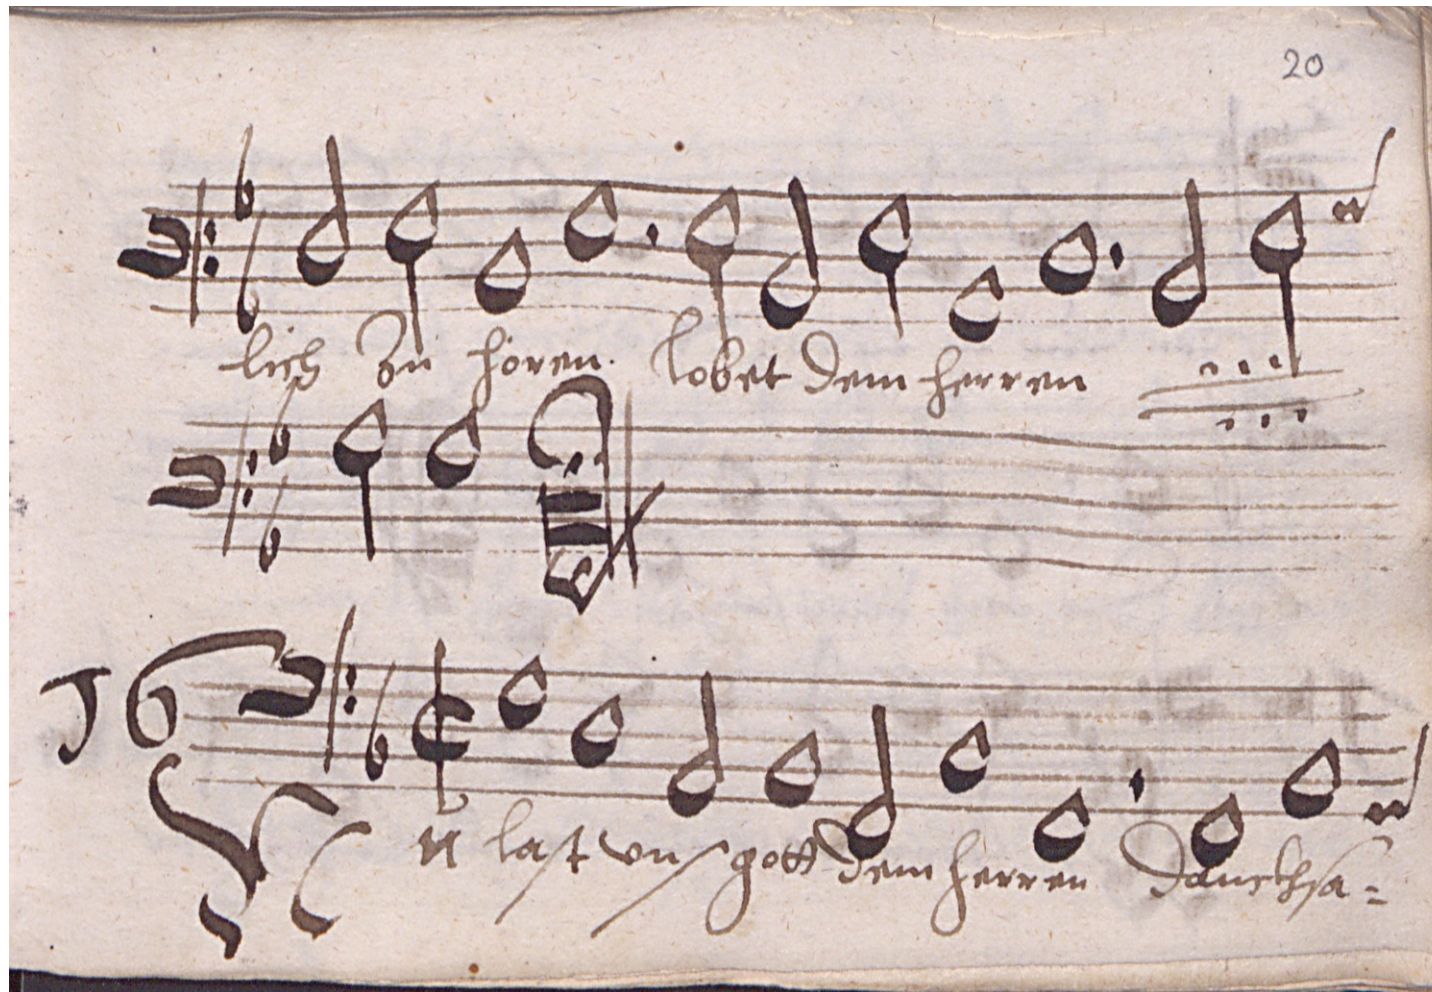 20
lich zu hören. lobet dem herren
16
Nu last uns gott dem herren dancksa=